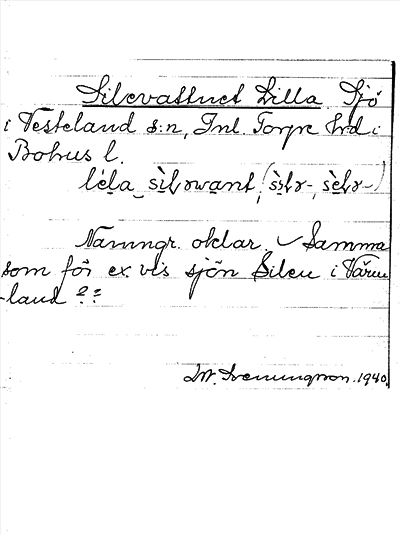 Silevattnet Lilla Sjö
i Vesteland s:n, Inl. Torpe hrd i
Bohus l.
lèla sìlvwant, (sìlv-, sèlv-)
Namngr. oklar. Samma
som för ex. vis sjön Silen i Värm
-land ??
Iw. Svenungsson. 1940.